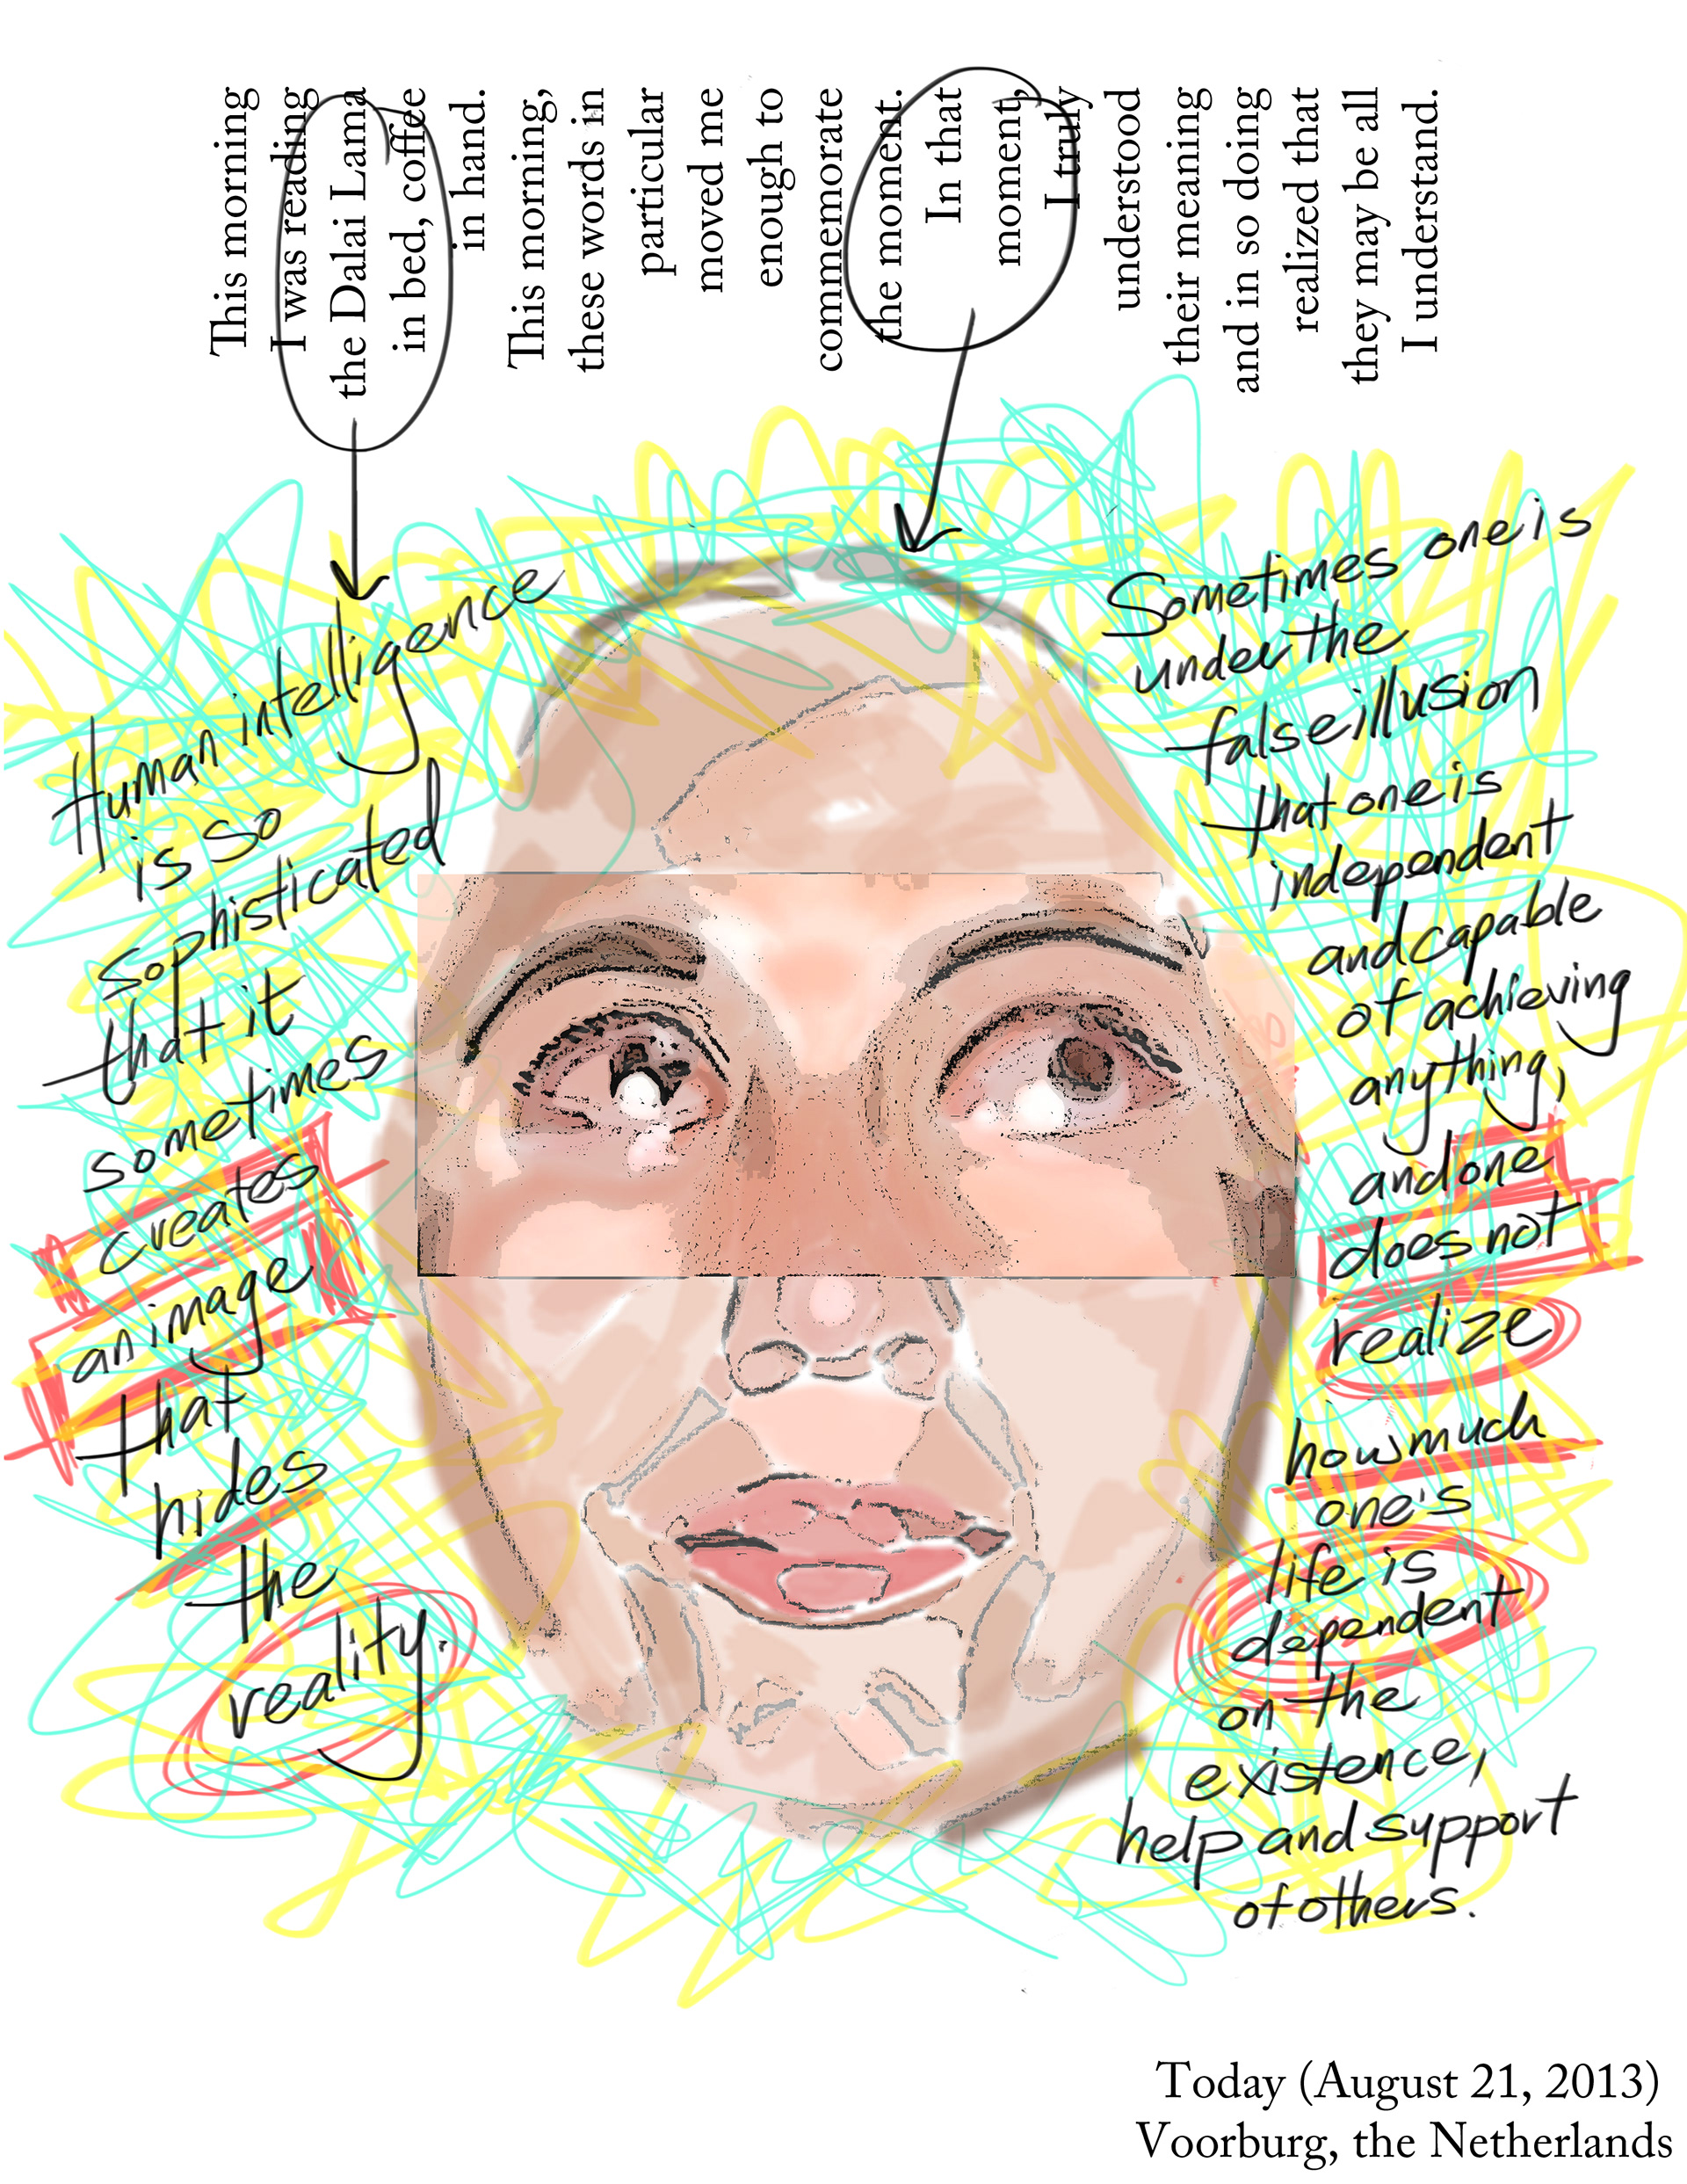 This morning
I was reading
the Dalai Lama
in bed, coffee
in hand.
This morning,
these words in
particular
moved me
enough to
commemorate
the moment.
In that
moment,
I truly
understood
their meaning
and in so doing
realized that
they may be all
I understand.
Human intelligence
is so
sophisticated
that it
sometimes
creates
an image
that
hides
the
reality.
Sometimes one is
under the
false illusion
that one is
independent
and capable
of achieving
anything,
and one
does not
realize
how much
one's
life is
dependent
on the
existence,
help and support
of others.
Today (August 21, 2013)
Voorburg, the Netherlands